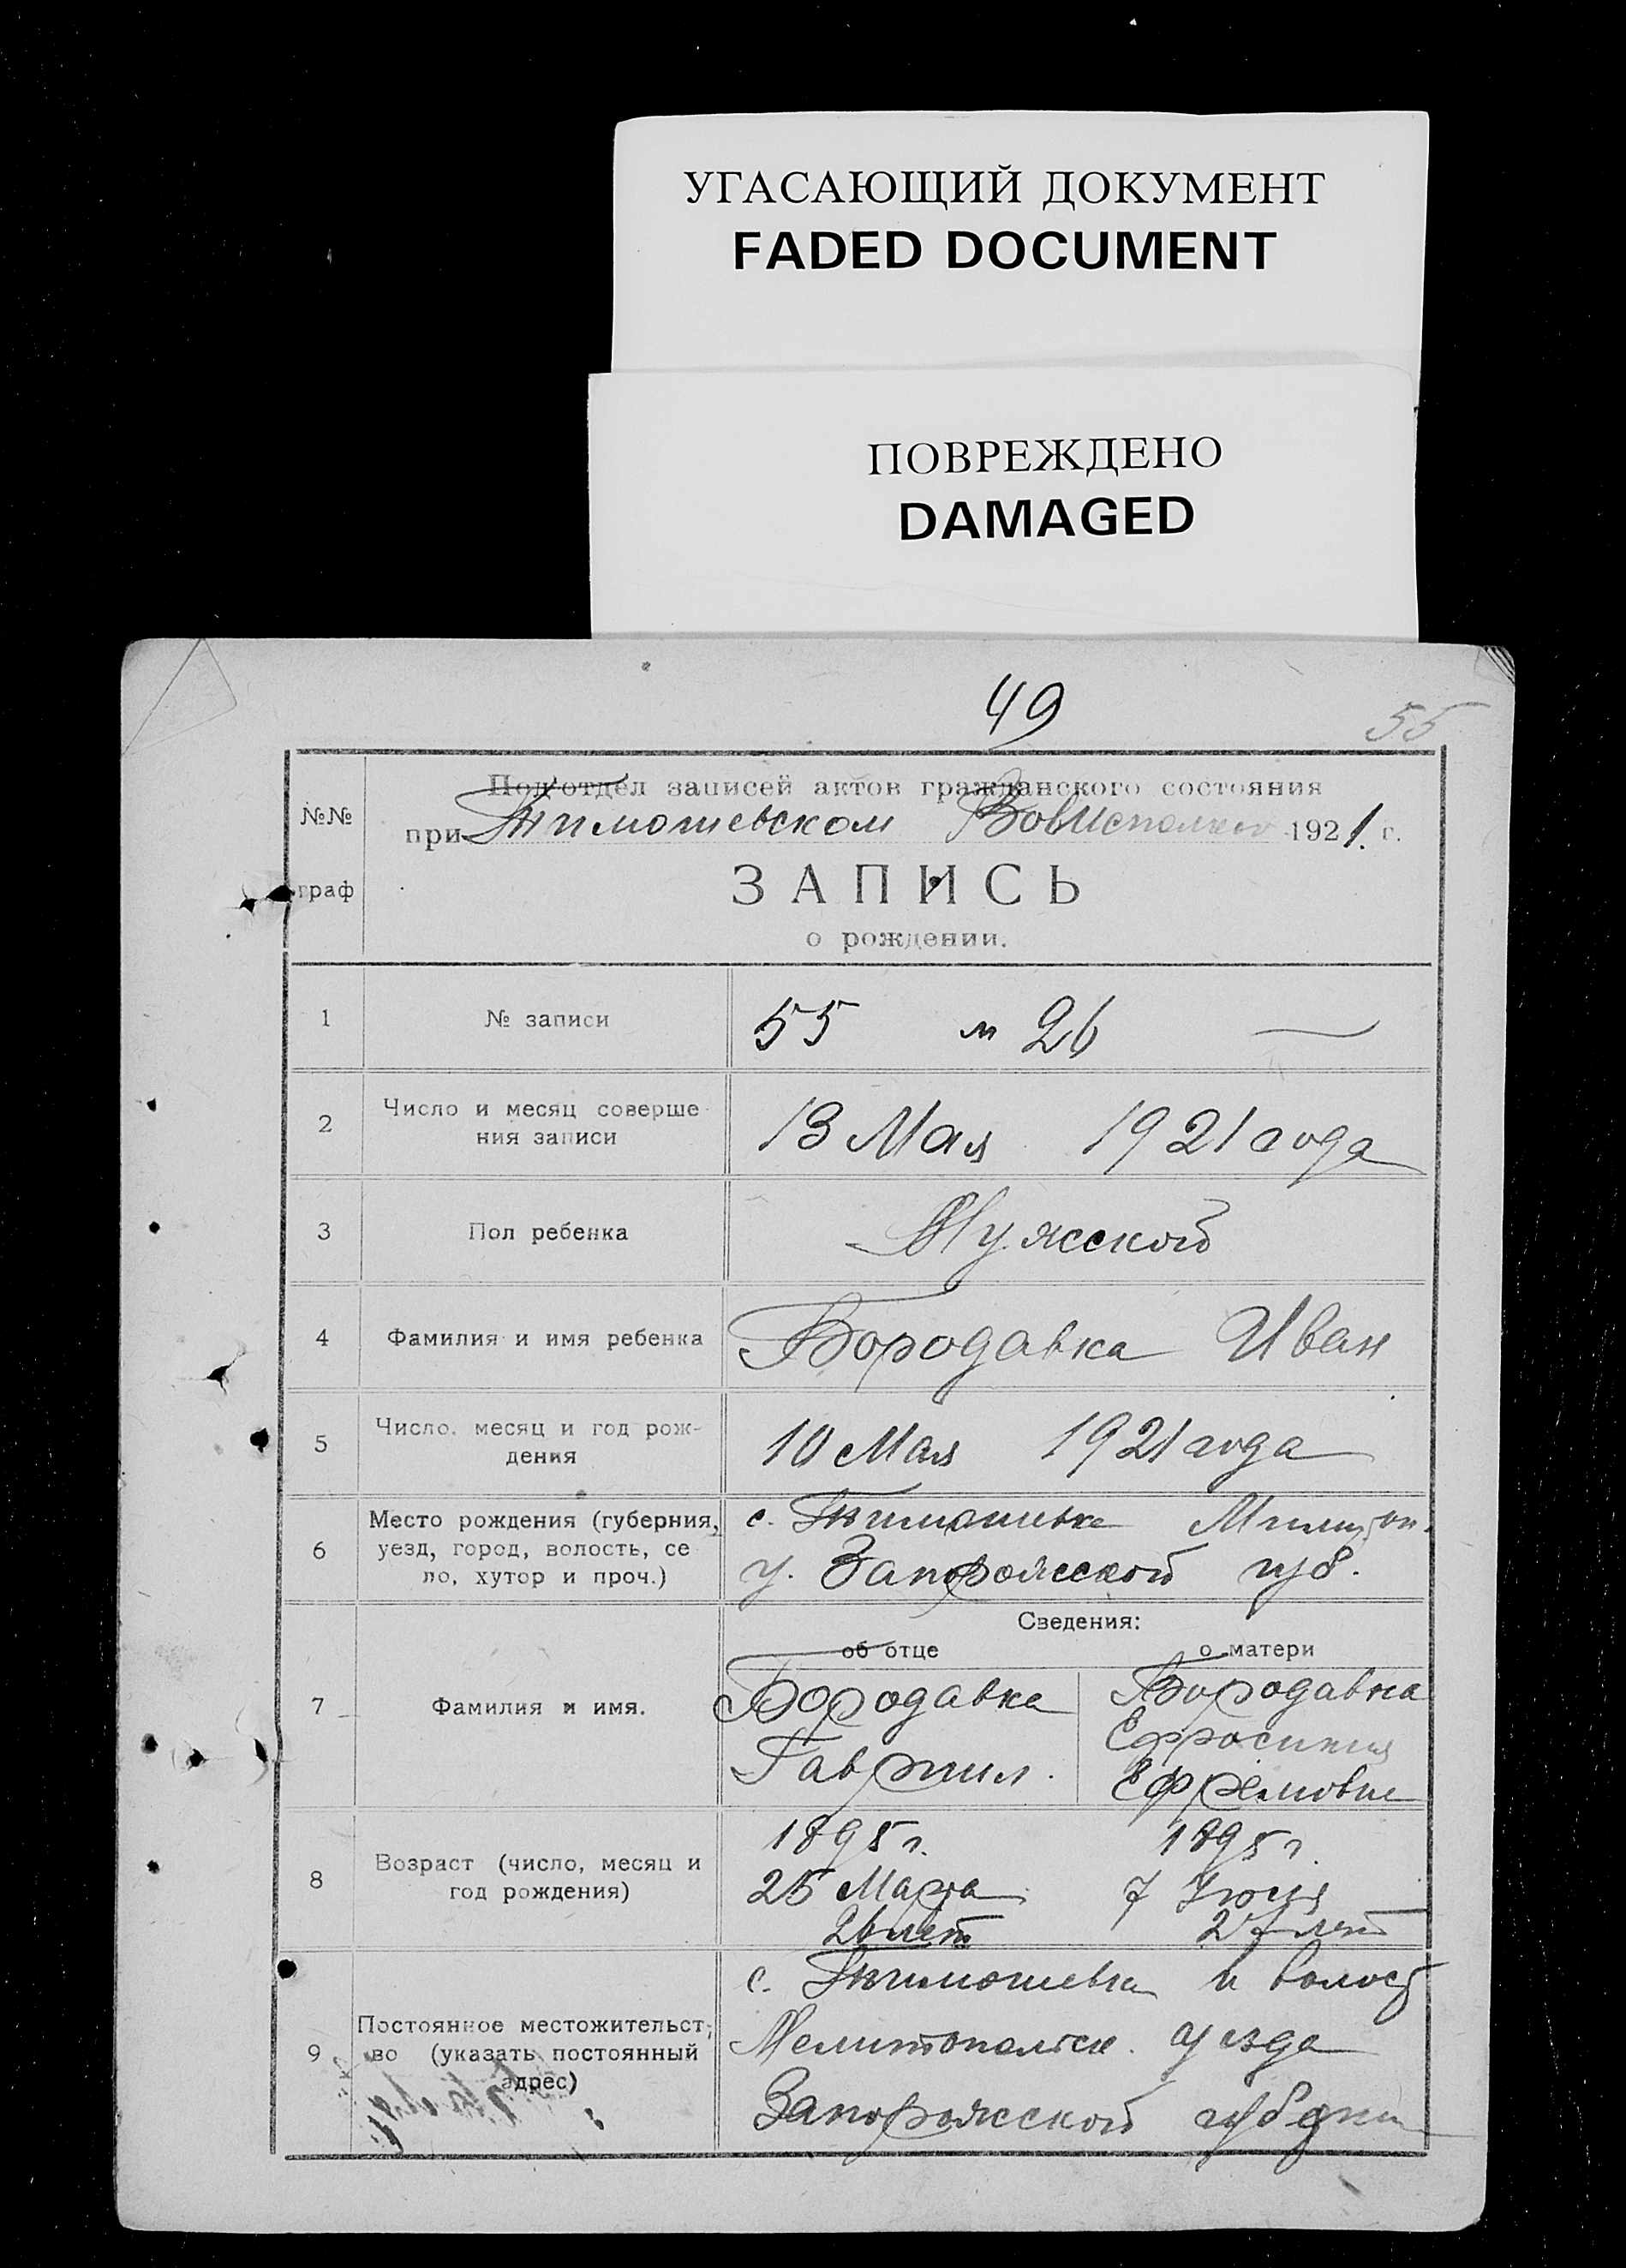 УГАСАЮЩИЙ ДОКУМЕНТ
FADED DOCUMENT
ПОВРЕЖДЕНО
DAMAGED
49
55
№№
граф
Под'отдел записей актов гражданского состояния
при Тимошевском 1921 г.
ЗАПИСЬ
о рождении.
1 № записи 55 м 26 —
2 Число и месяц соверше
ния записи
13 Мая 1921 года
3 Пол ребенка Мужской
4 Фамилия и имя ребенка Бородавка Иван
5 Число, месяц и год рож-
дения
10 Мая 1921 года
6 Место рождения (губерния,
уезд, город, волость, се
ло, хутор и проч.)
с. Тимошивка
у. Запорожской губ.
Сведения:
об отце о матери
7 Фамилия и имя.
Бородавка
Гавриил.
Бородавка
Ефросиния
8 Возраст (число, месяц и
год рождения)
1895 г.
25 Марта
26 лет
1895 г.
7
27 лет
9 Постоянное местожительст-
во (указать постоянный
адрес)
с. Тимошевка и волост
Мелитопольск. уезда
Запорожской